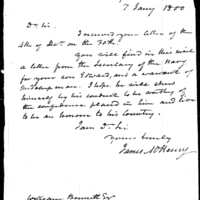 7 Jany 1800
Dr Sir.
I received your letter of the
4th of Decr. on the 30th.
you will find in this mail
a letter from the Secretary of the Navy
for your son Edward, and a warrant of
Midshipman. I hope he will shew
himself by his conduct to be worthy of
the confidence placed in him and live
to be an honour to his Country.
I am Dr Sir
yours truly
James McHenry
William Bennett Esqr